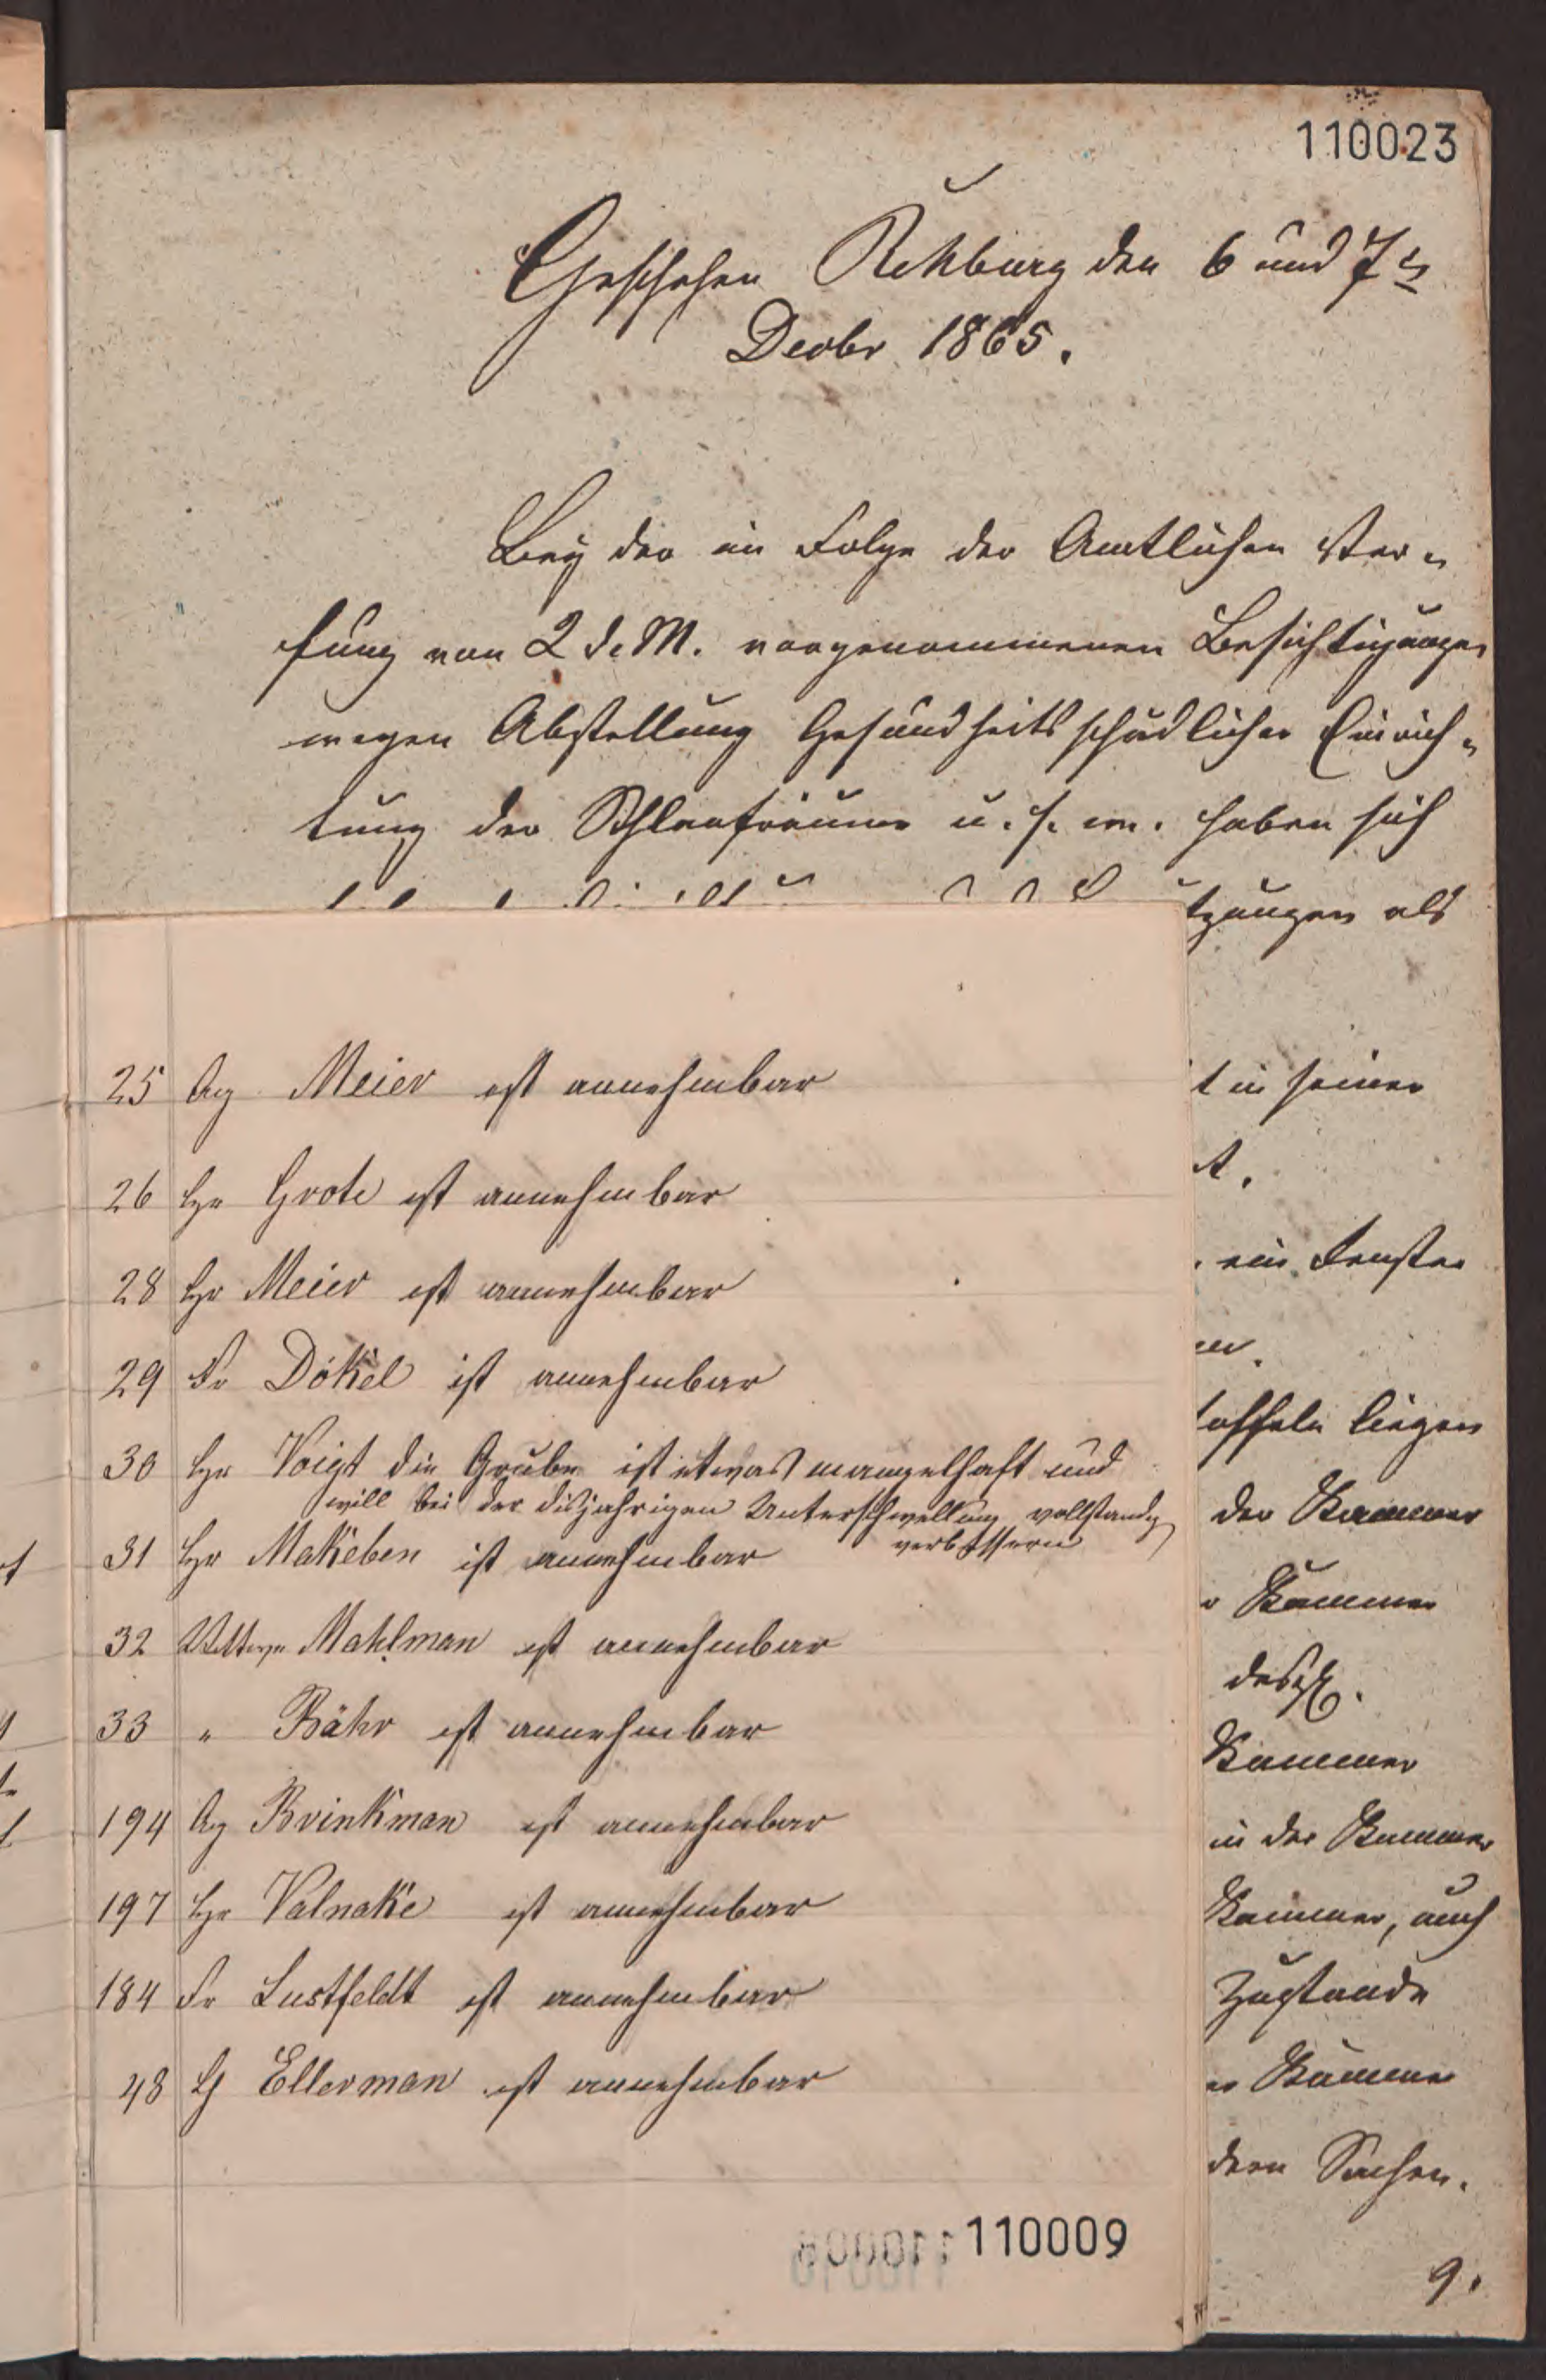 110023
Geschehen Rehburg den 6 und 7ts
Decbr 1865.
Bey der in Folge der Amtlichen Ver-
fung von 2 d. M. vorgenommenen Besichtigungen
wegen Abstellung Gesundheitsschädlicher Einrich-
tung der Schlafräume u. s. w. haben sich
tzungen als
t in seiner
t.
ein Fenster
toffeln liegen
der Kammer
Kammer
desgl.
Kammer
in der Kammer
Kammer, auch
Zustande
Kammer
dern Sachen.
9.
25 Meier ist annehmbar
26 Hr Grote ist annehmbar
28 Hr Meier ist annehmbar
29 Fr Dökel ist annehmbar
30 Hr Voigt die Grube ist etwas mangelhaft und
will bei der disjahrigen Unterschwellung vollstandig
verbessern
31 Hr Makeben ist annehmbar
32 Mahlman ist annehmbar
33 " Bähr ist annehmbar
194 Brinkman ist annehmbar
197 Hr Valnake ist annehmbar
184 Fr Lustfeldt ist annehmbar
48 Ellerman ist annehmbar
110009